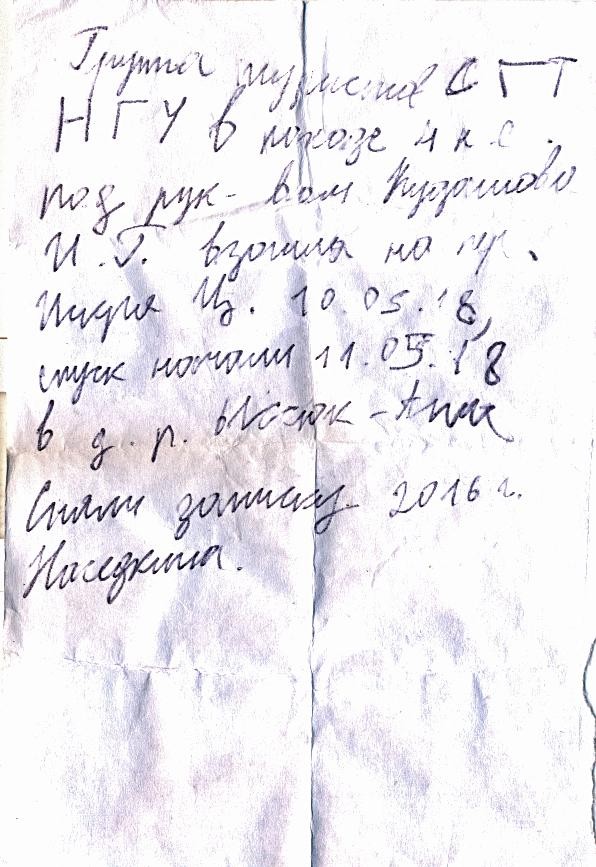 Группа туристов СГТ
НГУ в походе 4 к.с.
под рук-вом Кудашова
И.Г. взошла на пер.
Ц. 10.05.18,
спуск начали 11.05.18
в д.р. Ыссык-Ата
Сняли записку 2016 г.
Наседкина.